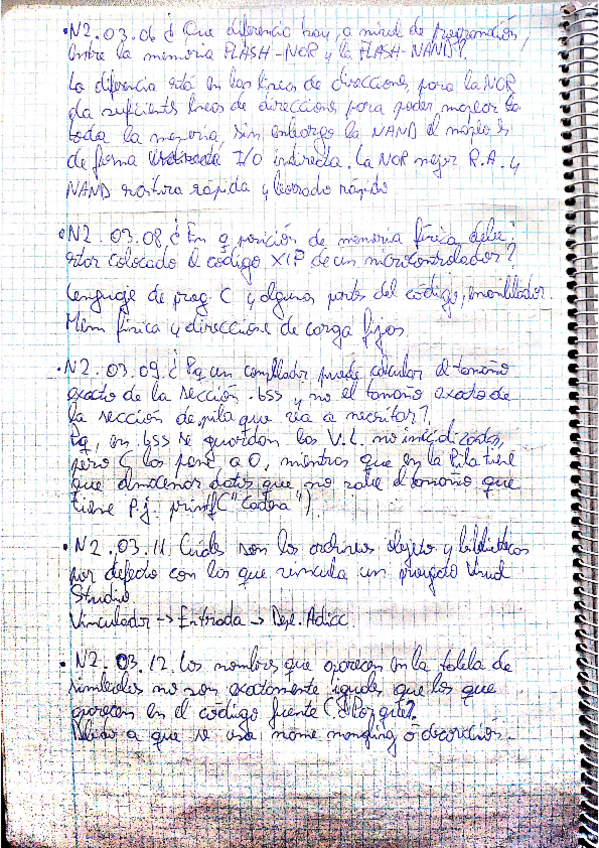 • N2.03.06 ¿ Que diferencia hay, a nivel de programación,
entre la memoria FLASH-NOR y la FLASH-NAND?
La diferencia está en las líneas de direcciones, para la NOR
da suficientes líneas de direcciones para poder mapear
toda la memoria, sin embargo la NAND el mapeo es
de forma I/O indirecta. La NOR mejor R.A. y
NAND escritura rápida y borrado rápido
• N2.03.08. ¿ En q posición de memoria física debe
estar colocado el código XIP de un microcontrolador?
Lenguaje de prog. C y algunas partes del código, ensamblador.
Mem física y direcciones de carga fijos.
• N2.03.09. ¿ Pq un compilador puede calcular el tamaño
exacto de la sección .bss y no el tamaño exacto de
la sección de pila que va a necesitar?
Pq, en bss se guardan las V.L. no inicializadas,
pero C las pone a 0, mientras que en la Pila tiene
que almacenar datos que no sabe el tamaño que
tiene P.j. printf("Cadena")
• N2.03.11. Cuáles son los archivos objeto y bibliotecas
por defecto con los que vincula un proyecto Visual
Studio
Vinculador -> Entrada -> Dep. Adicc.
• N2.03.12. Los nombres que aparecen en la tabla de
símbolos no son exactamente iguales que los que
aparecen en el código fuente C. ¿Por qué?
Debido a que se usa name mangling o decoración.